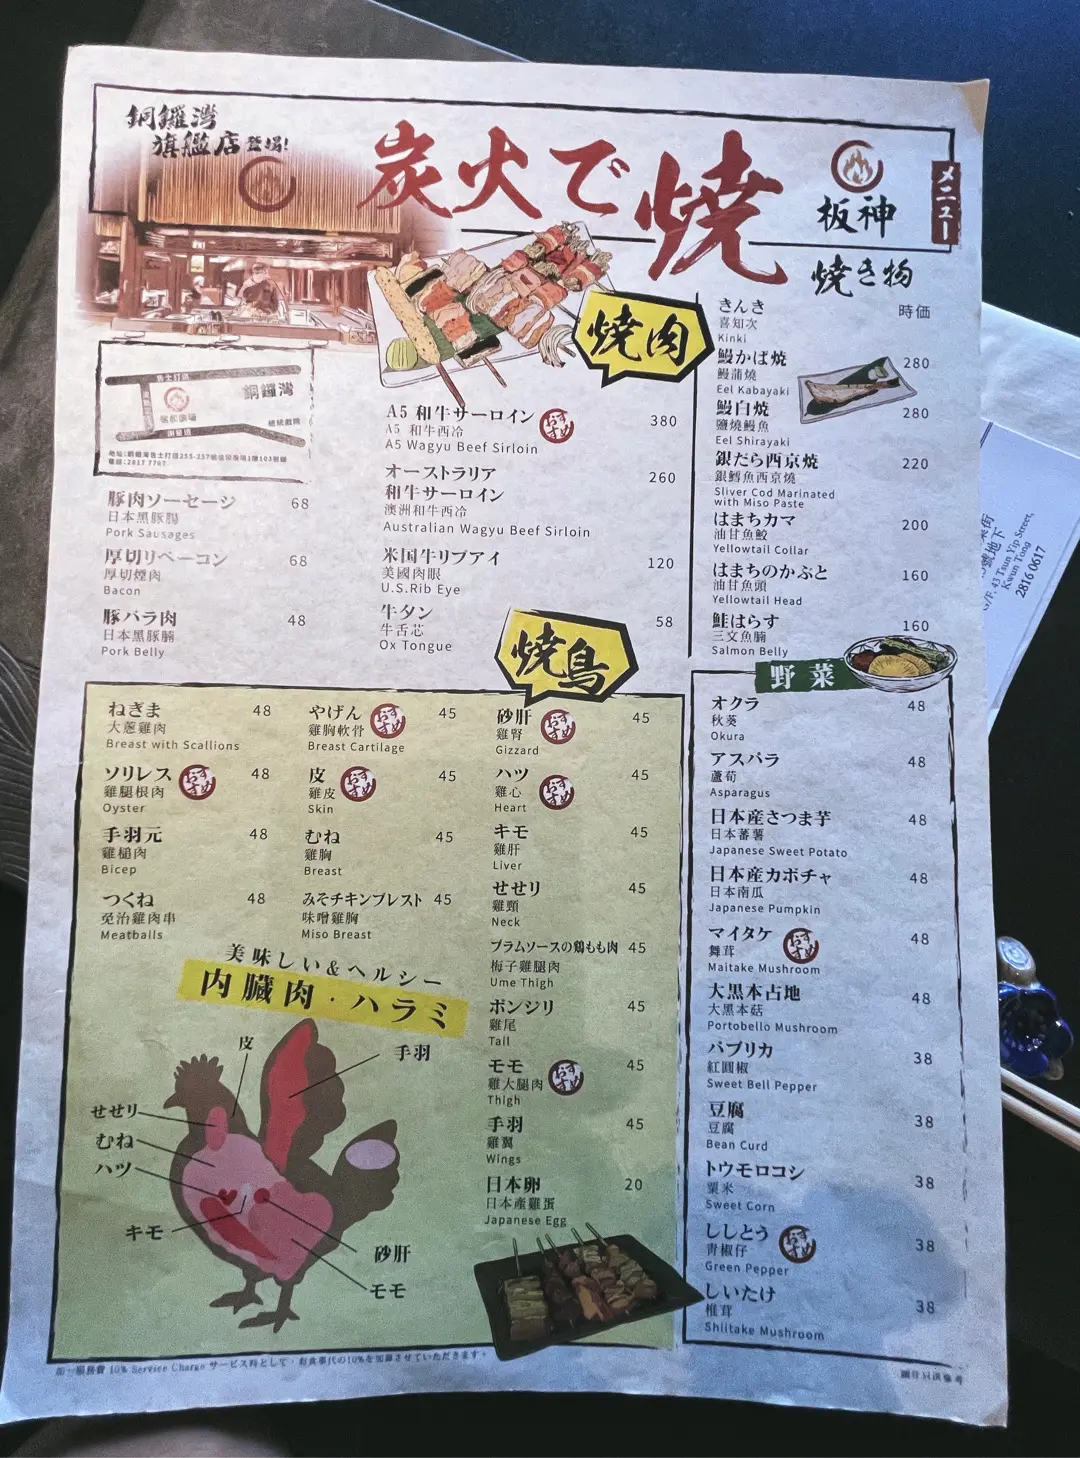 銅鑼灣
旗艦店登場!
炭火で焼
板神
メニュー
焼き物
銅鑼灣
地址:銅鑼灣告士打道255-257號信和廣場1樓103號舖
電話:2817 7767
豚肉ソーセージ 68
日本黑豚腸
Pork Sausages
厚切りベーコン 68
厚切煙肉
Bacon
豚バラ肉 48
日本黑豚腩
Pork Belly
焼肉
A5 和牛サーロイン おすすめ 380
A5 和牛西冷
A5 Wagyu Beef Sirloin
オーストラリア 260
和牛サーロイン
澳洲和牛西冷
Australian Wagyu Beef Sirloin
米国牛リブアイ 120
美國肉眼
U.S.Rib Eye
牛タン 58
牛舌芯
Ox Tongue
きんき 時価
喜知次
Kinki
鰻かば焼 280
鰻蒲燒
Eel Kabayaki
鰻白焼 280
鹽燒鰻魚
Eel Shirayaki
銀だら西京焼 220
銀鱈魚西京燒
Sliver Cod Marinated
with Miso Paste
はまちカマ 200
油甘魚鮫
Yellowtail Collar
はまちのかぶと 160
油甘魚頭
Yellowtail Head
鮭はらす 160
三文魚腩
Salmon Belly
焼鳥
ねぎま 48
大蔥雞肉
Breast with Scallions
ソリレス おすすめ 48
雞腿根肉
Oyster
手羽元 48
雞槌肉
Bicep
つくね 48
免治雞肉串
Meatballs
やげん おすすめ 45
雞胸軟骨
Breast Cartilage
皮 おすすめ 45
雞皮
Skin
むね 45
雞胸
Breast
みそチキンブレスト 45
味噌雞胸
Miso Breast
砂肝 おすすめ 45
雞腎
Gizzard
ハツ おすすめ 45
雞心
Heart
キモ 45
雞肝
Liver
せせり 45
雞頸
Neck
プラムソースの鶏もも肉 45
梅子雞腿肉
Ume Thigh
ボンジリ 45
雞尾
Tail
モモ おすすめ 45
雞大腿肉
Thigh
手羽 45
雞翼
Wings
日本卵 20
日本產雞蛋
Japanese Egg
美味しい&ヘルシー
内臓肉・ハラミ
皮
手羽
せせり
むね
ハツ
キモ
砂肝
モモ
野菜
オクラ 48
秋葵
Okura
アスパラ 48
蘆荀
Asparagus
日本産さつま芋 48
日本蕃薯
Japanese Sweet Potato
日本産カボチャ 48
日本南瓜
Japanese Pumpkin
マイタケ おすすめ 48
舞茸
Maitake Mushroom
大黒本占地 48
大黑本菇
Portobello Mushroom
パプリカ 38
紅圓椒
Sweet Bell Pepper
豆腐 38
豆腐
Bean Curd
トウモロコシ 38
粟米
Sweet Corn
ししとう おすすめ 38
青椒仔
Green Pepper
しいたけ 38
椎茸
Shiitake Mushroom
加一服務費 10% Service Charge サービス料として、お食事代の10%を加算させていただきます。
圖片只供參考
G/F, 43 Tsun Yip Street,
Kwun Tong
2816 0617